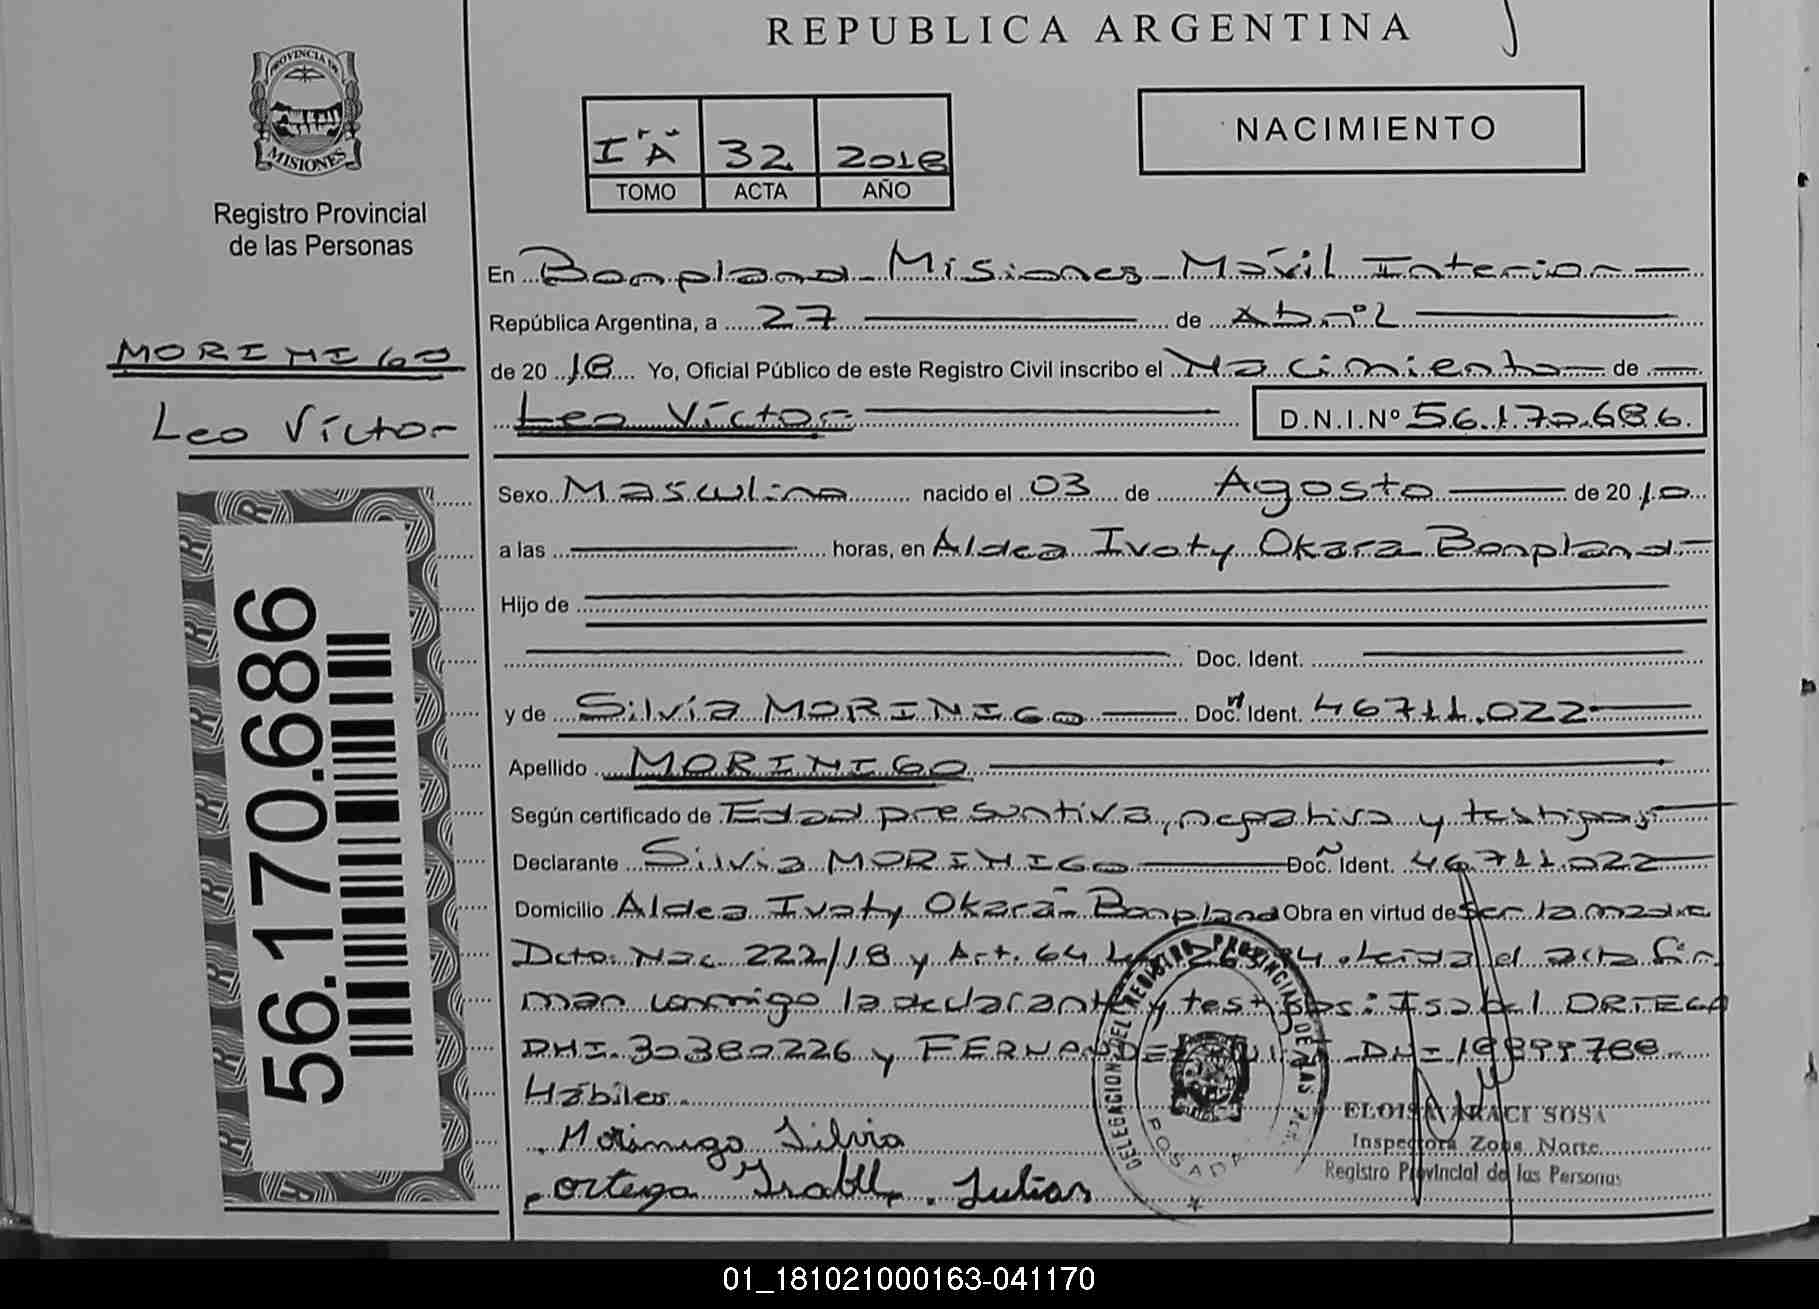 REPUBLICA ARGENTINA
PROVINCIA DE MISIONES
Registro Provincial
de las Personas
I "A" 32 2018
TOMO ACTA AÑO
NACIMIENTO
En Bonpland Misiones Móvil Interior
República Argentina, a 27 de Abril
de 2018 Yo, Oficial Público de este Registro Civil inscribo el Nacimiento de
Leo Víctor D.N.I.Nº 56.170.686
MORINIGO
Leo Víctor
56.170.686
Sexo Masculino nacido el 03 de Agosto de 2010
a las horas, en Aldea Ivoty Okara Bonpland
Hijo de
Doc. Ident.
y de Silvia MORINIGO Doc. Ident. 46711.022
Apellido MORINIGO
Según certificado de Edad presuntiva, negativa y testigos
Declarante Silvia MORINIGO Doc. Ident. 46711.022
Domicilio Aldea Ivoty Okara Bonpland Obra en virtud de ser la madre
Dcto. Nac. 222/18 y Art. 64 Leida el acta fir
man conmigo la declarante y testigos: Isabel ORTEGA
DNI. 30380226 y FERNANDEZ DNI
Hábiles
Morinigo Silvia
ortega Isabel Julian
DELEGACION DEL REGISTRO PROVINCIAL DE LAS
POSADAS
ELOISA ARACI SOSA
Inspectora Zona Norte
Registro Provincial de las Personas
01_181021000163-041170